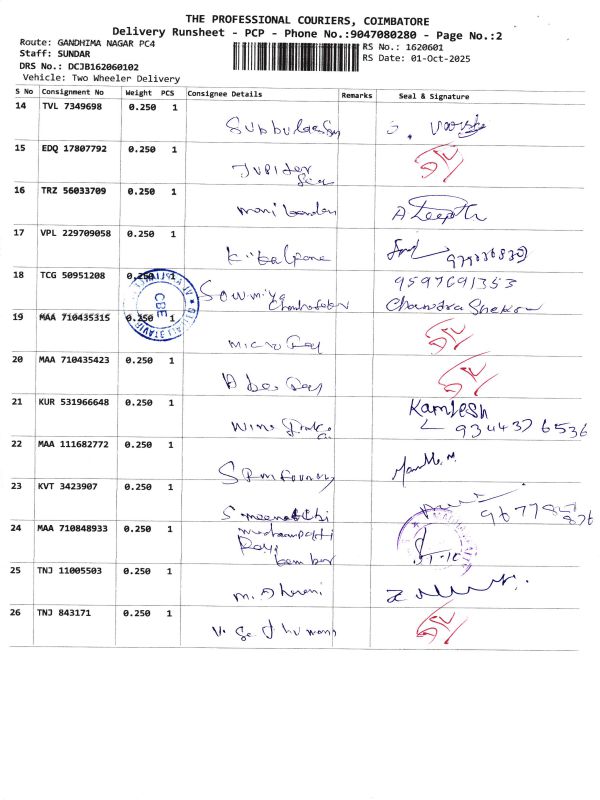 THE PROFESSIONAL COURIERS, COIMBATORE
Delivery Runsheet - PCP - Phone No.:9047080280 - Page No.:2
Route: GANDHIMA NAGAR PC4
Staff: SUNDAR
DRS No.: DCJB162060102
Vehicle: Two Wheeler Delivery
RS No.: 1620601
RS Date: 01-Oct-2025
S No Consignment No Weight PCS Consignee Details Remarks Seal & Signature
14 TVL 7349698 0.250 1
15 EDQ 17807792 0.250 1 Jupiter
16 TRZ 56033709 0.250 1 A Deepth
17 VPL 229709058 0.250 1 K. Kalpana
18 TCG 50951208 0.250 1 Sowmiya Chandrasekar 9597691353 Chandra Shekar
CBE
19 MAA 710435315 0.250 1 Micro
20 MAA 710435423 0.250 1
21 KUR 531966648 0.250 1 Kamlesh 9344376536
22 MAA 111682772 0.250 1 SPM Foundry
23 KVT 3423907 0.250 1 S meenakshi
24 MAA 710848933 0.250 1
25 TNJ 11005503 0.250 1 M. Dharani
26 TNJ 843171 0.250 1